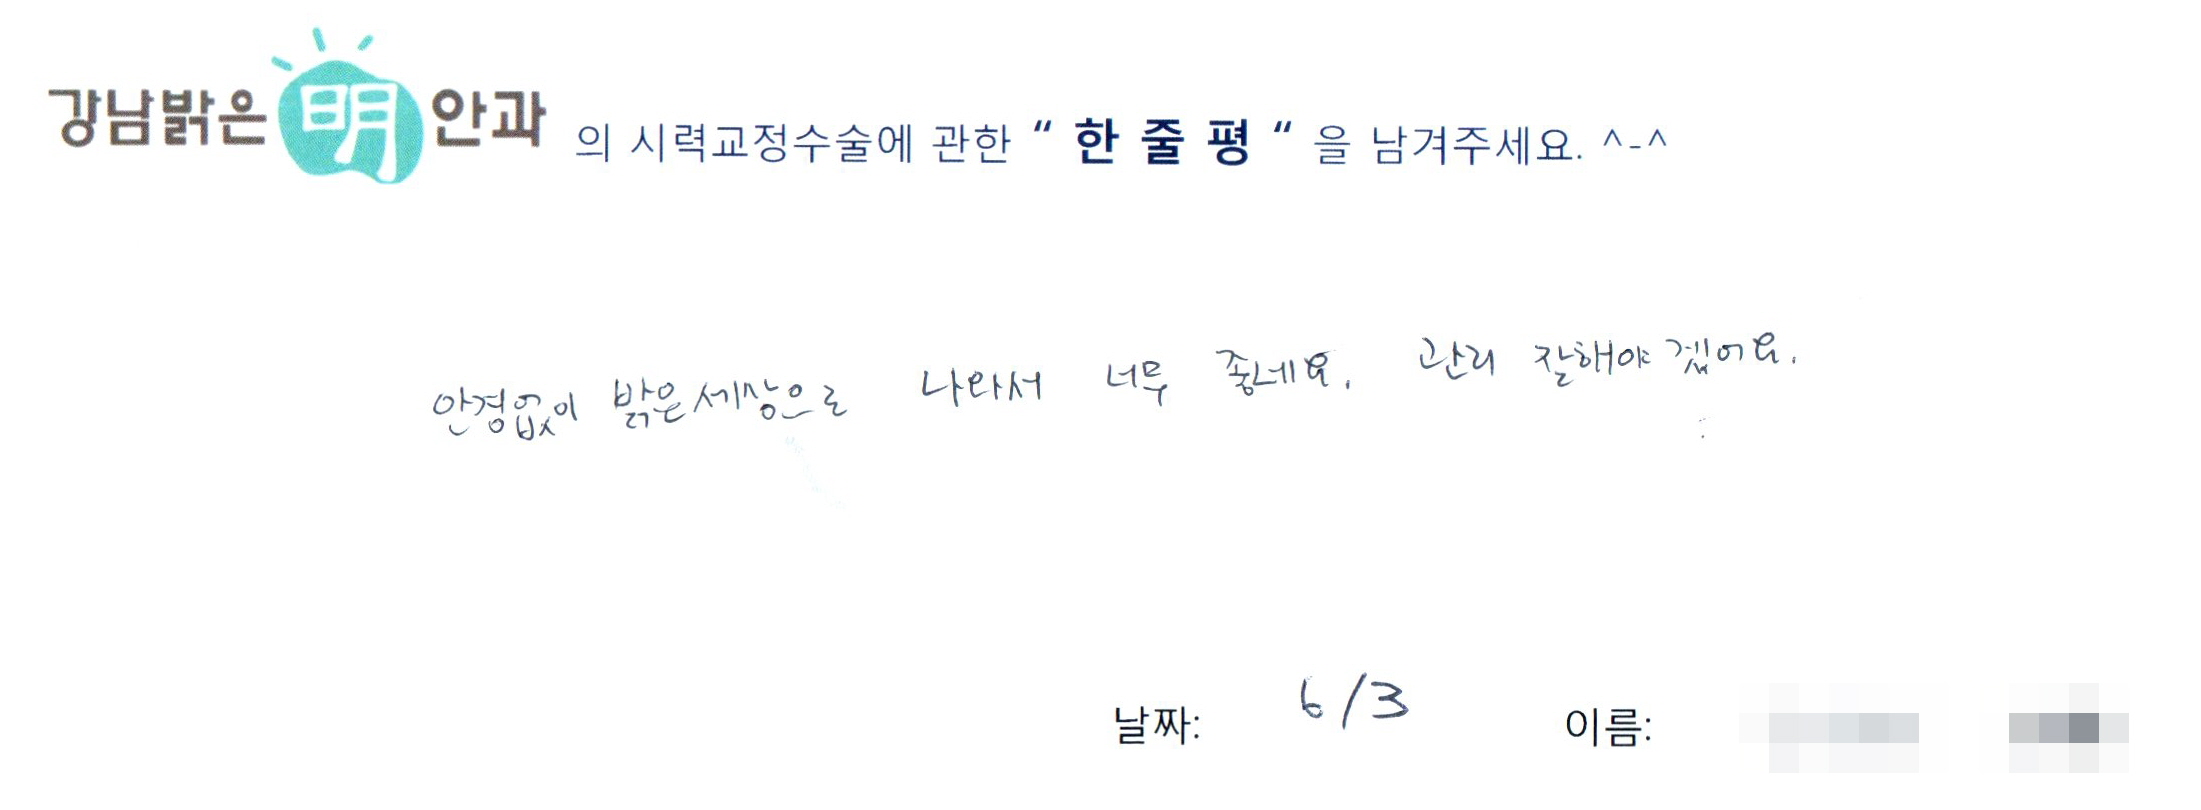 강남밝은明안과 의 시력교정수술에 관한 “ 한 줄 평 “ 을 남겨주세요. ^-^
안경없이 밝은세상으로 나와서 너무 좋네요. 관리 잘해야겠어요.
날짜: 6/3 이름: